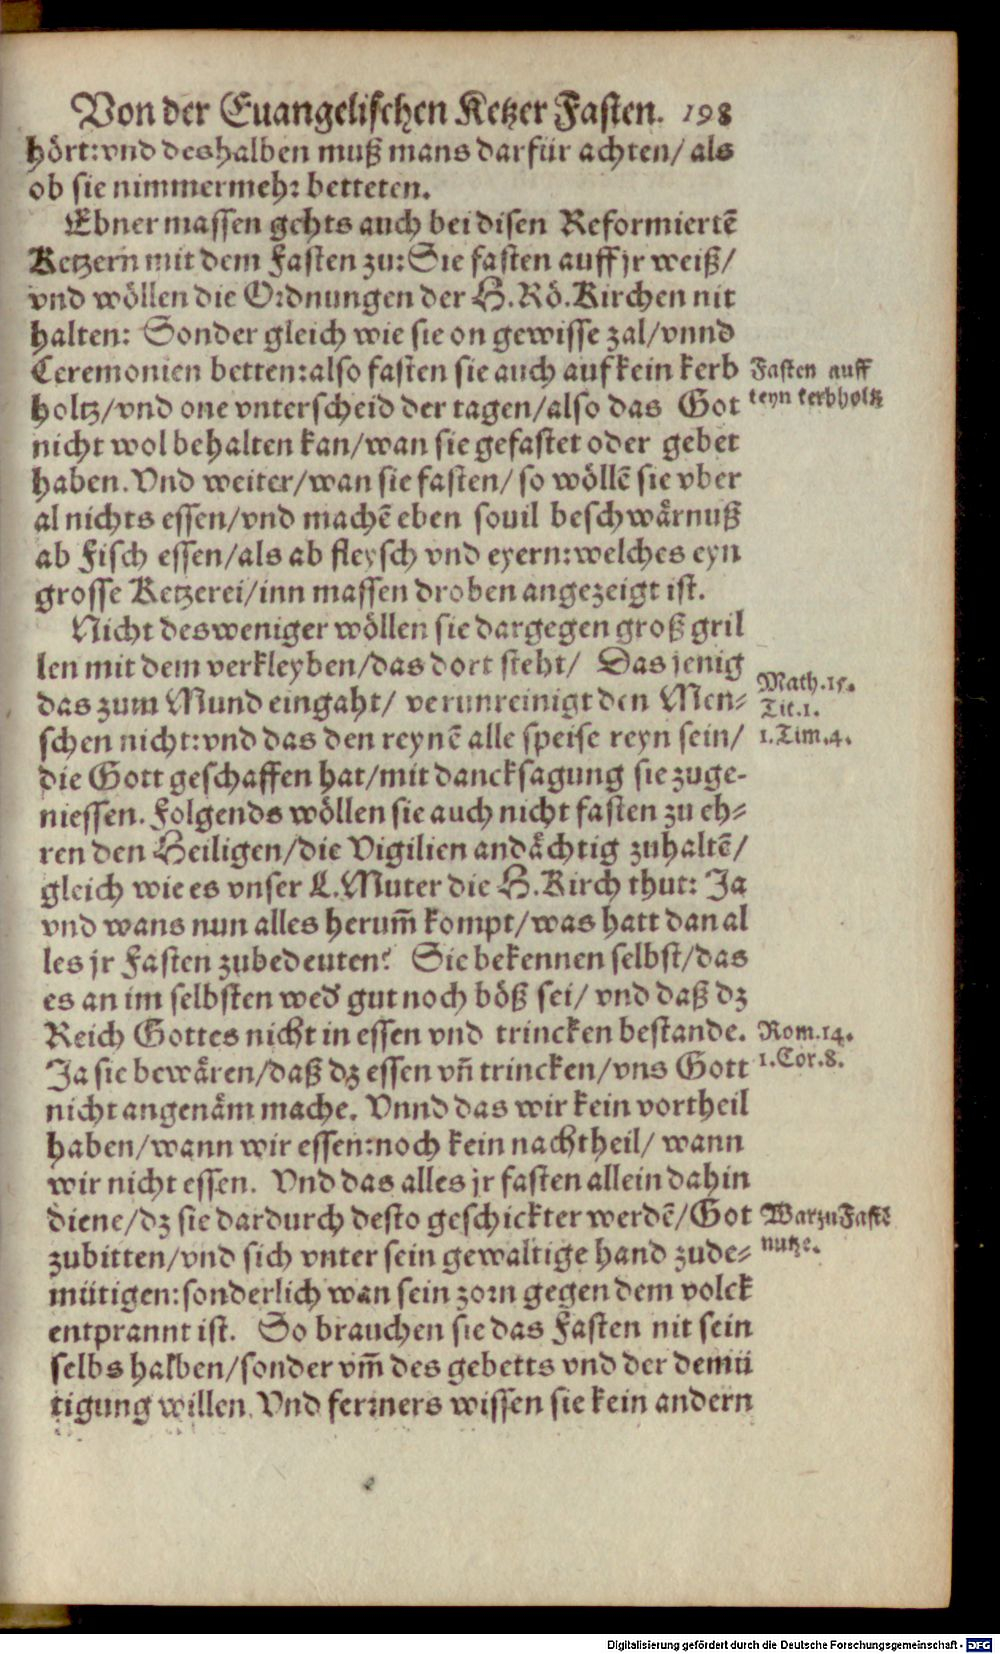 Von der Euangelischen Ketzer Fasten. 198
hört: vnd deshalben muß mans darfür achten/ als
ob sie nimmermehr betteten.
Ebner massen gehts auch bei disen Reformiertē
Ketzern mit dem Fasten zu: Sie fasten auff jr weiß/
vnd wöllen die Ordnungen der H. Rö. Kirchen nit
halten: Sonder gleich wie sie on gewisse zal/ vnnd
Ceremonien betten: also fasten sie auch auf kein kerb
Fasten auff
holtz/ vnd one vnterscheid der tagen/ also das Got
keyn kerbholtz
nicht wol behalten kan/ wan sie gefastet oder gebet
haben. Vnd weiter/ wan sie fasten/ so wöllē sie vber
al nichts essen/ vnd machē eben souil beschwärnuß
ab Fisch essen/ als ab fleysch vnd eyern: welches eyn
grosse Ketzerei/ inn massen droben angezeigt ist.
Nicht desweniger wöllen sie dargegen groß gril
len mit dem verkleyben/ das dort steht/ Das jenig
Math. 15.
das zum Mund eingaht/ verunreinigt den Men-
Tit. 1.
schen nicht: vnd das den reynē alle speise reyn sein/
1. Tim. 4.
die Gott geschaffen hat/ mit dancksagung sie zuge-
niessen. Folgends wöllen sie auch nicht fasten zu eh-
ren den Heiligen/ die Vigilien andächtig zuhaltē/
gleich wie es vnser L. Muter die H. Kirch thut: Ja
vnd wans nun alles herum̃ kompt/ was hatt dan al
les jr Fasten zubedeuten? Sie bekennen selbst/ das
es an im selbsten wed' gut noch böß sei/ vnd daß dz
Reich Gottes nicht in essen vnd trincken bestande.
Rom. 14.
Ja sie bewären/ daß dz essen vñ trincken/ vns Gott
1. Cor. 8.
nicht angenäm mache. Vnnd das wir kein vortheil
haben/ wann wir essen: noch kein nachtheil/ wann
wir nicht essen. Vnd das alles jr fasten allein dahin
diene/ dz sie dardurch desto geschickter werdē/ Got
Warzu Fastē
zubitten/ vnd sich vnter sein gewaltige hand zude-
nutze.
mütigen: sonderlich wan sein zorn gegen dem volck
entprannt ist. So brauchen sie das Fasten nit sein
selbs halben/ sonder vm̃ des gebetts vnd der demü
tigung willen. Vnd ferrners wissen sie kein andern
Digitalisierung gefördert durch die Deutsche Forschungsgemeinschaft - DFG